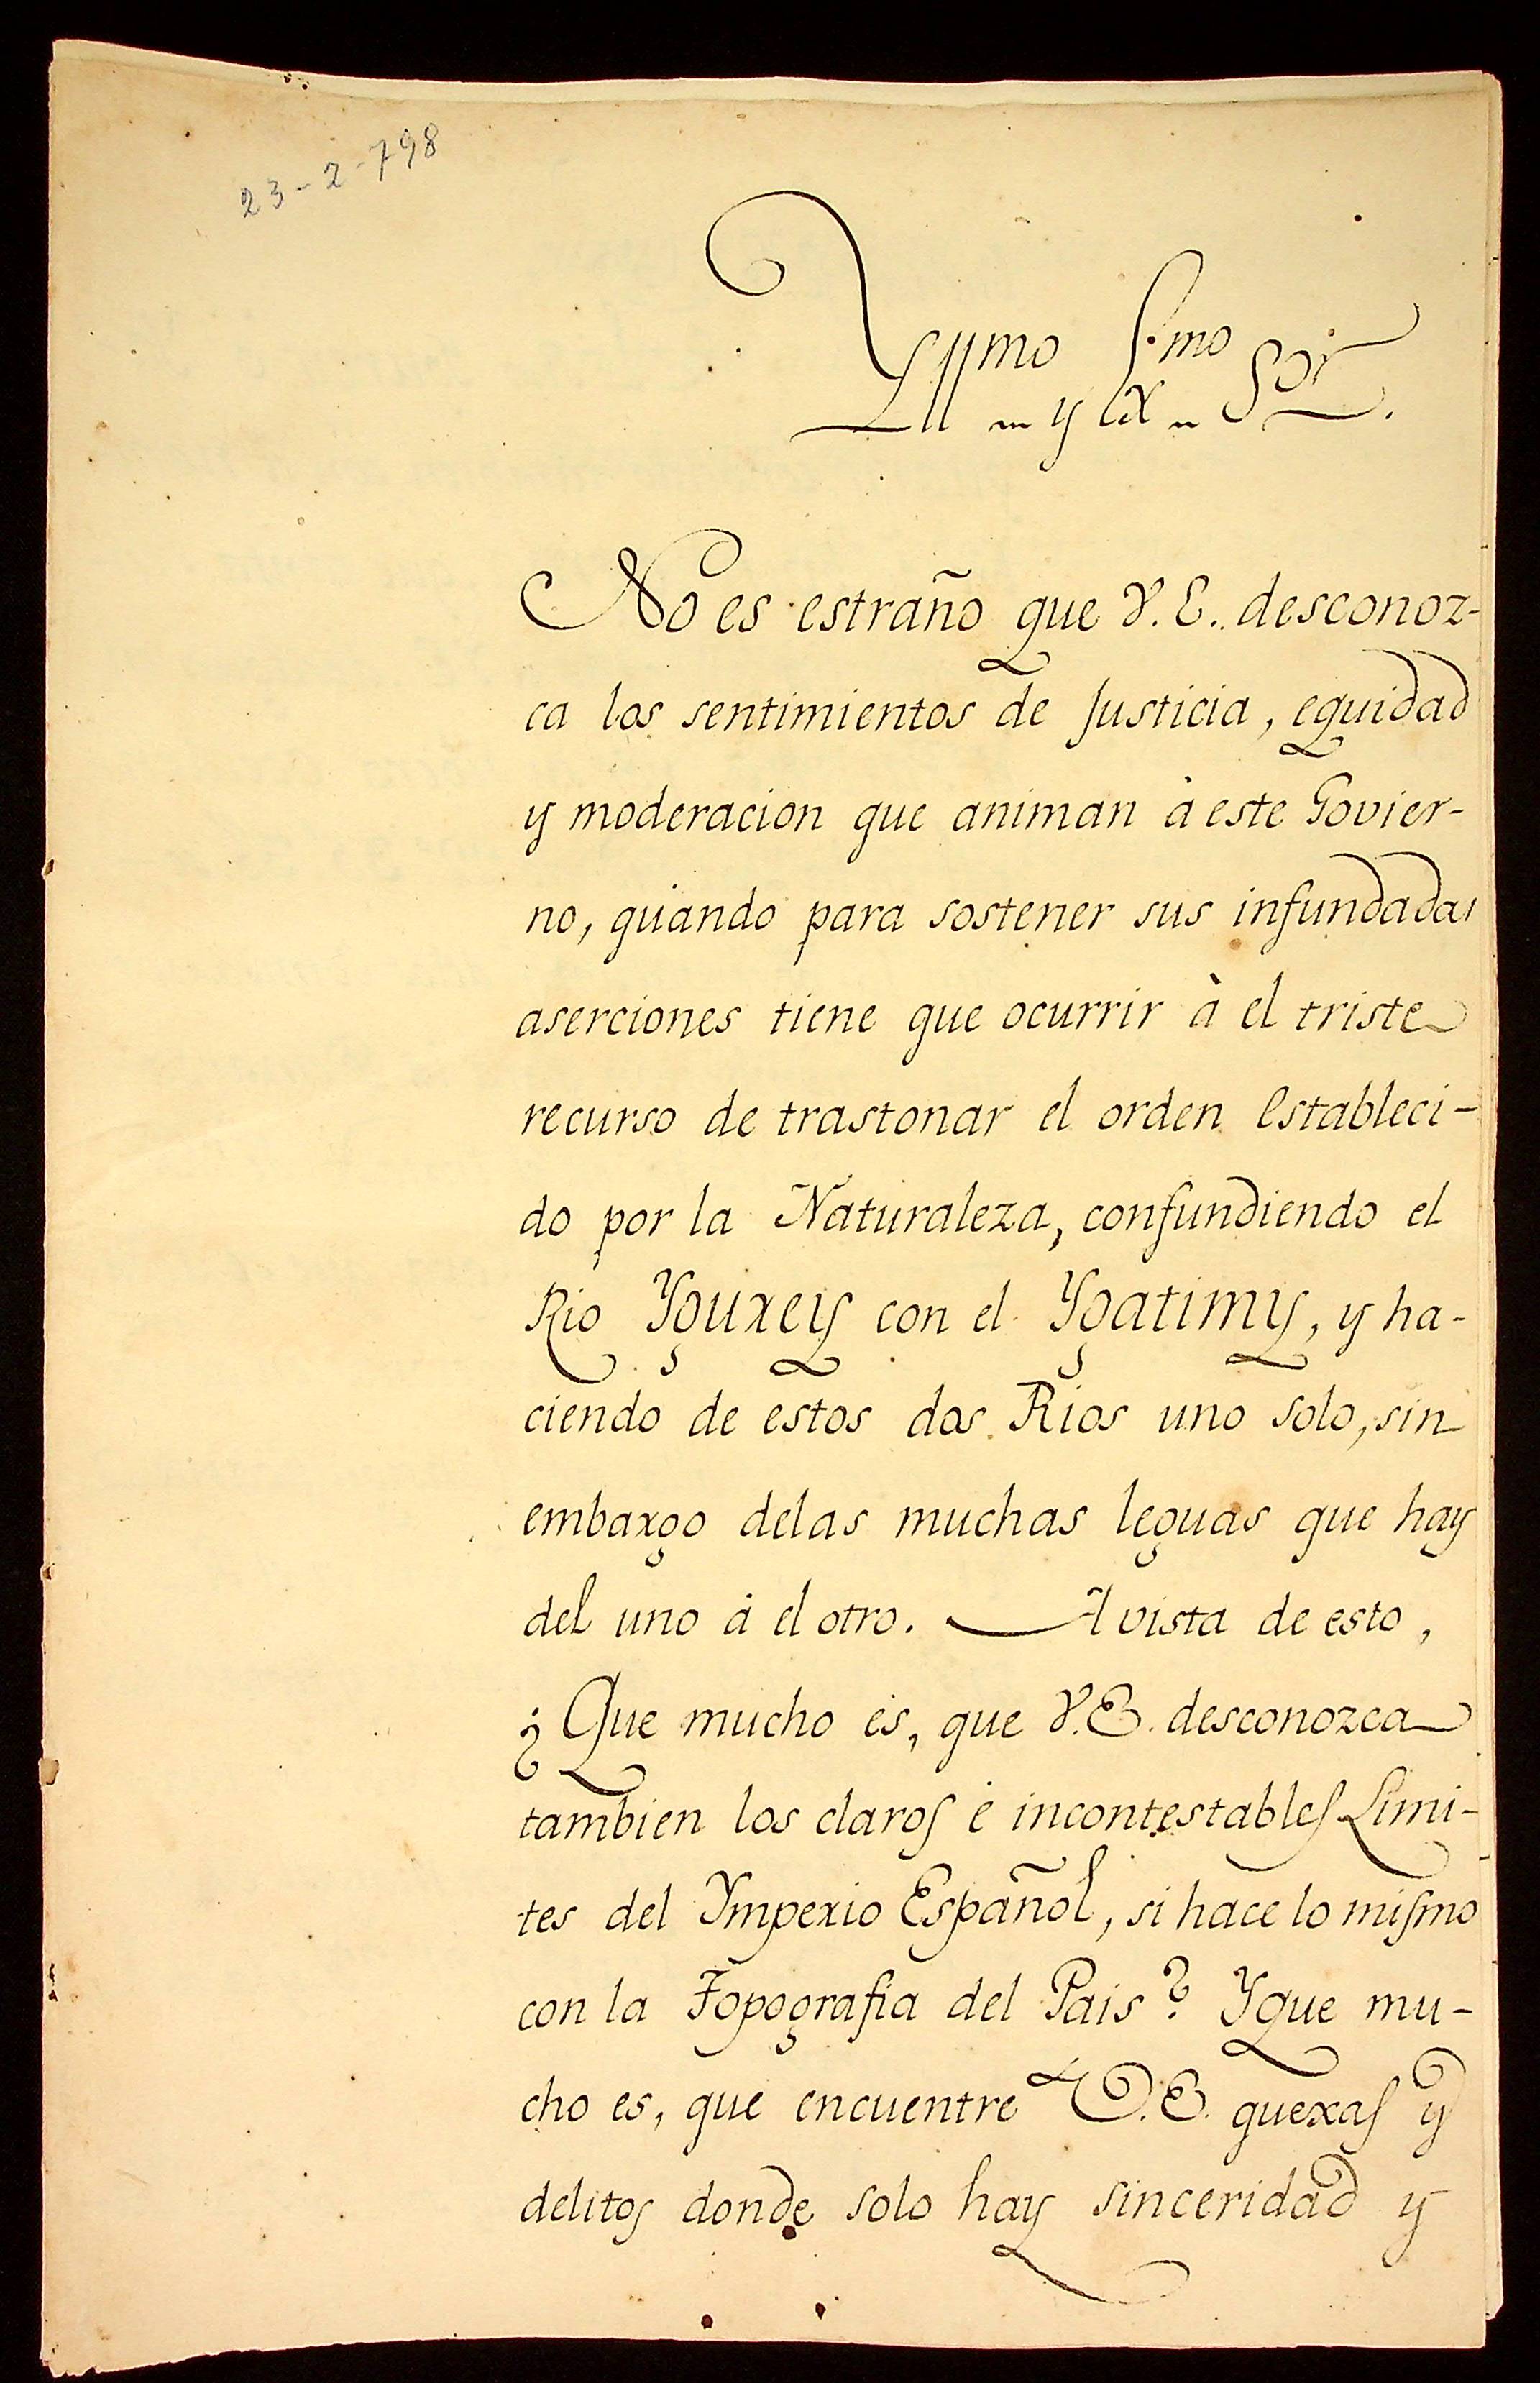 23-2-798
Yllmo y Exmo Sor.
No es estraño que V. E. desconoz-
ca los sentimientos de Justicia, equidad
y moderacion que animan à este Govier-
no, quando para sostener sus infundadas
aserciones tiene que ocurrir à el triste
recurso de trastonar el orden Estableci-
do por la Naturaleza, confundiendo el
Rio Ygurey con el Ygatimy, y ha-
ciendo de estos dos Rios uno solo, sin
embargo delas muchas leguas que hay
del uno à el otro. A vista de esto,
¿Que mucho es, que V.E. desconozca
tambien los claros è incontestables Limi-
tes del Ymperio Español, si hace lo mismo
con la Topografia del Pais? Y que mu-
cho es, que encuentre V.E. quexas y
delitos donde solo hay sinceridad y